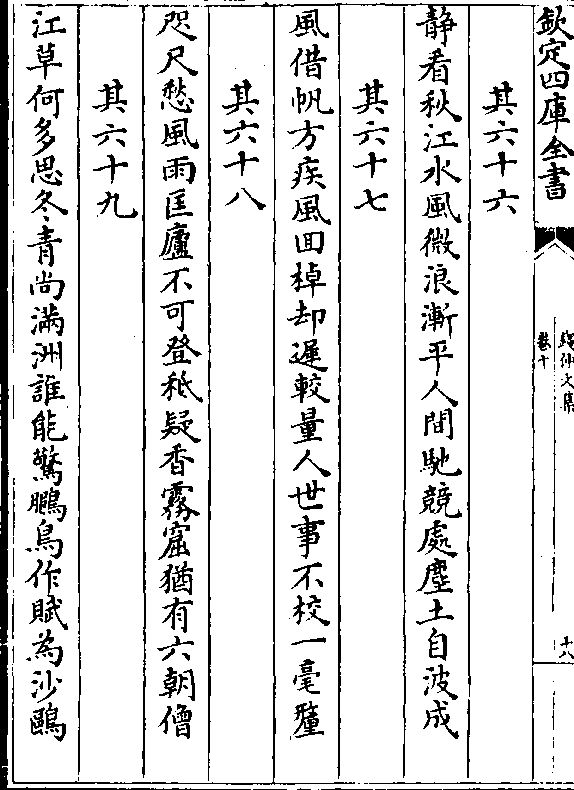 欽定四庫全書
錢仲文集
卷十
十八
其六十六
静看秋江水風微浪漸平人間馳競處塵土自波成
其六十七
風借帆方疾風囬棹却遲較量人世事不校一毫釐
其六十八
咫尺愁風雨匡廬不可登秪疑香霧窟猶有六朝僧
其六十九
江草何多思冬青尚滿洲誰能驚鵬鳥作賦為沙鷗